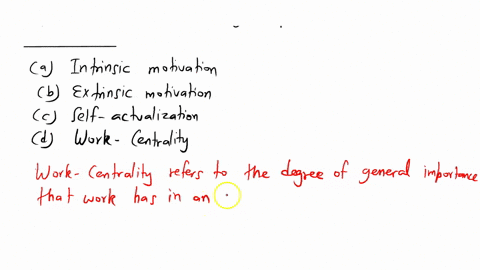 (a) Intrinsic motivation
(b) Extrinsic motivation
(c) Self-actualization
(d) Work-Centrality
Work-Centrality refers to the degree of general importance
that work has in an